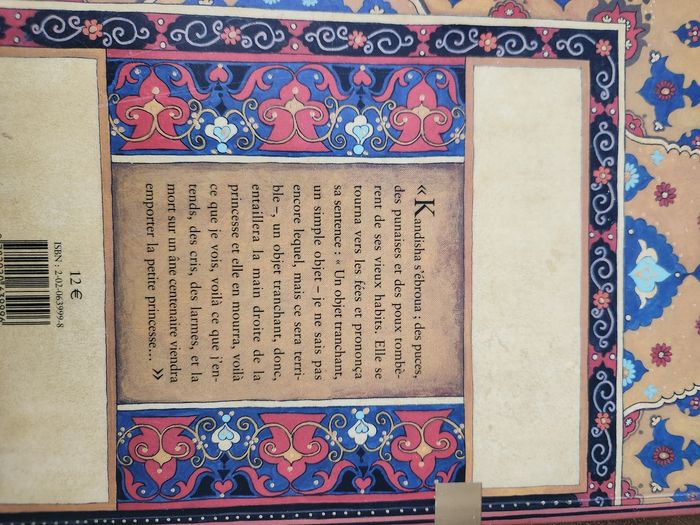 « Kandisha s'ébroua : des puces,
des punaises et des poux tombè-
rent de ses vieux habits. Elle se
tourna vers les fées et prononça
sa sentence : « Un objet tranchant,
un simple objet – je ne sais pas
encore lequel, mais ce sera terri-
ble –, un objet tranchant, donc,
entaillera la main droite de la
princesse et elle en mourra, voilà
ce que je vois, voilà ce que j'en-
tends, des cris, des larmes, et la
mort sur un âne centenaire viendra
emporter la petite princesse... »
12 €
ISBN : 2-02-063999-8